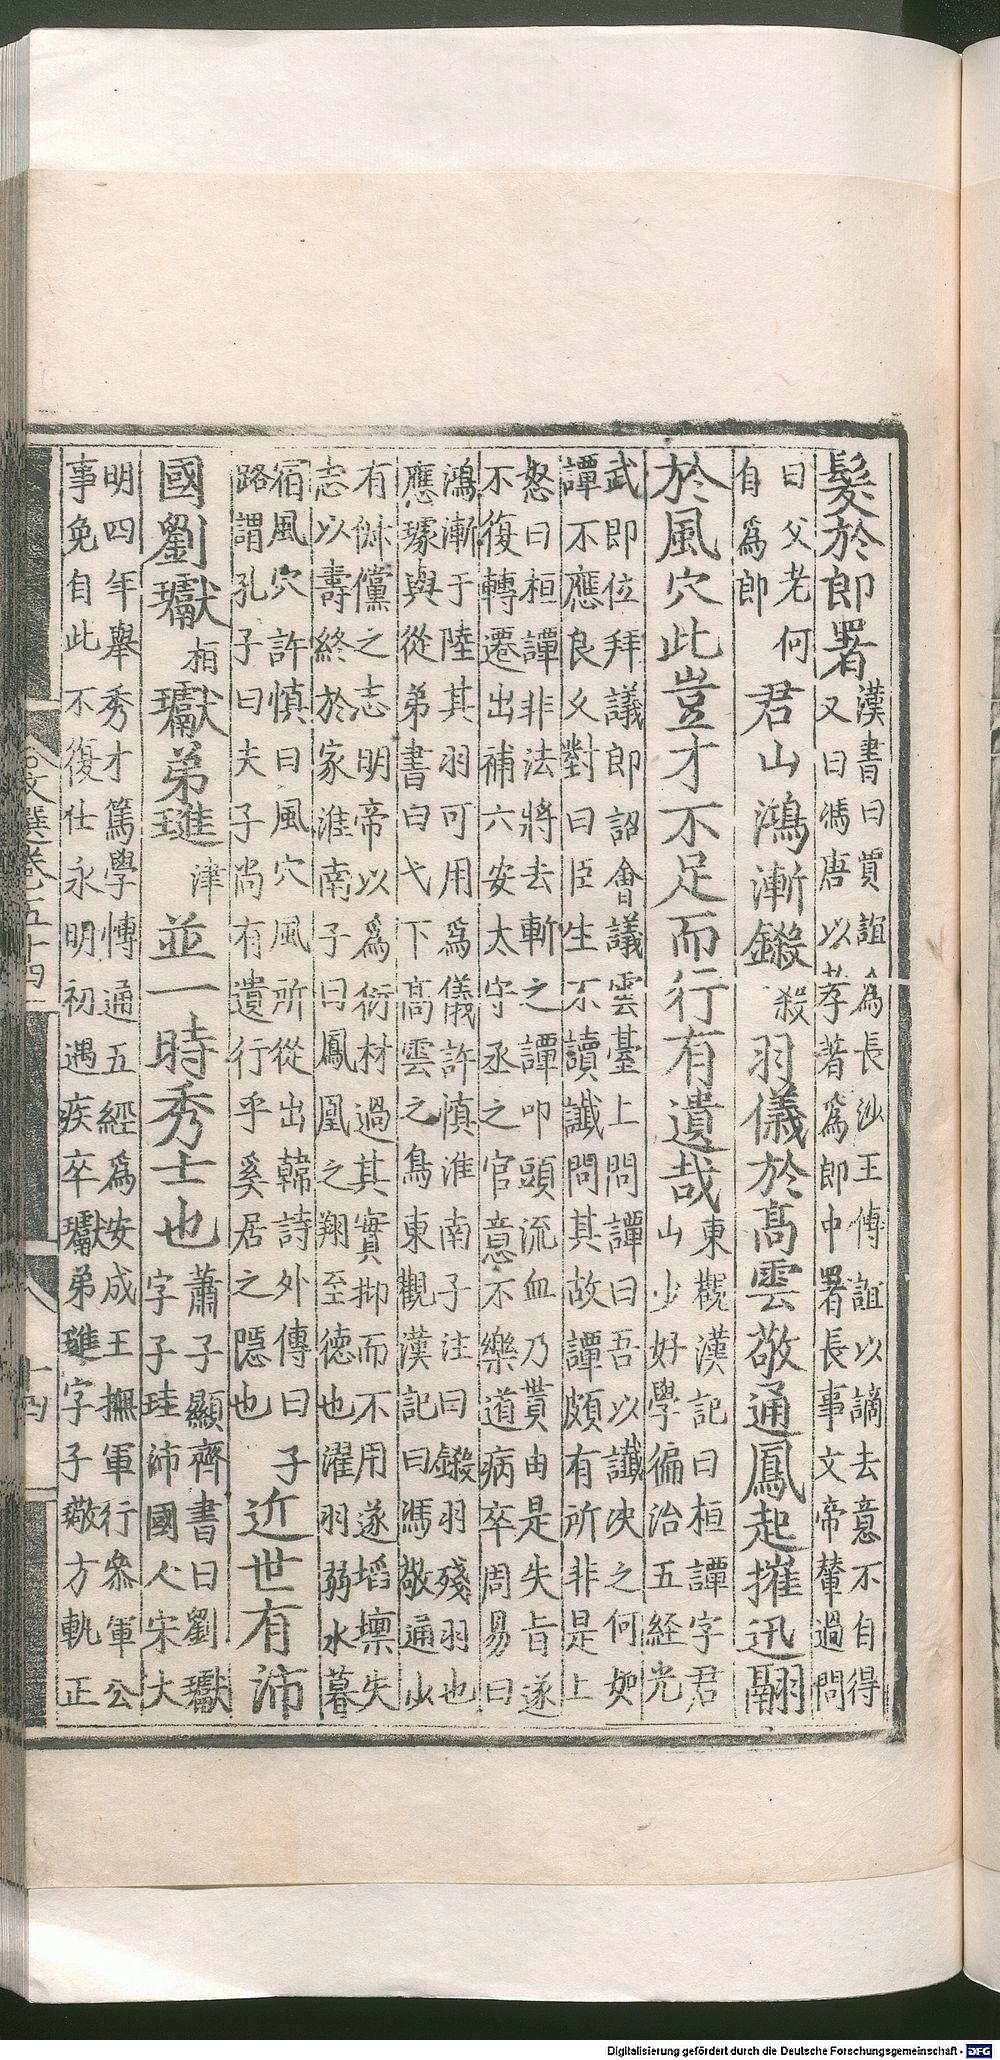 髮於郎署
漢書曰賈誼為長沙王傅誼以謫去意不自得
又曰馮唐以孝著爲郎中署長事文帝輦過問
曰父老何
自爲郎
君山鴻漸鎩殺羽儀於高雲敬通鳳起摧迅翮
於風穴此豈才不足而行有遺哉
東觀漢記曰桓譚字君
山少好學徧治五経光
武即位拜議郎詔會議雲臺上問譚曰吾以讖决之何如
譚不應良乆對曰臣生不讀讖問其故譚頗有所非是上
怒曰桓譚非法將去斬之譚叩頭流血乃貰由是失旨遂
不復轉遷出補六安太守丞之官意不樂道病卒周易曰
鴻漸于陸其羽可用爲儀許慎淮南子注曰鎩羽殘羽也
應璩與從弟書曰弋下高雲之鳥東觀漢記曰馮敬通少
有俶儻之志明帝以爲衍材過其實抑而不用遂塪壈失
志以壽終於家淮南子曰鳳凰之翔至德也濯羽弱水暮
宿風穴許慎曰風穴風所從出韓詩外傳曰子
路謂孔子曰夫子尚有遺行乎奚居之隱也
近世有沛
國劉瓛桓瓛弟璡津並一時秀士也
蕭子顯齊書曰劉瓛
字子珪沛國人宋大
明四年舉秀才篤學博通五經爲安成王撫軍行參軍公
事免自此不復仕永明初遇疾卒瓛弟璡字子敬方軌正
文選卷五十四
十四
Digitalisierung gefördert durch die Deutsche Forschungsgemeinschaft - DFG